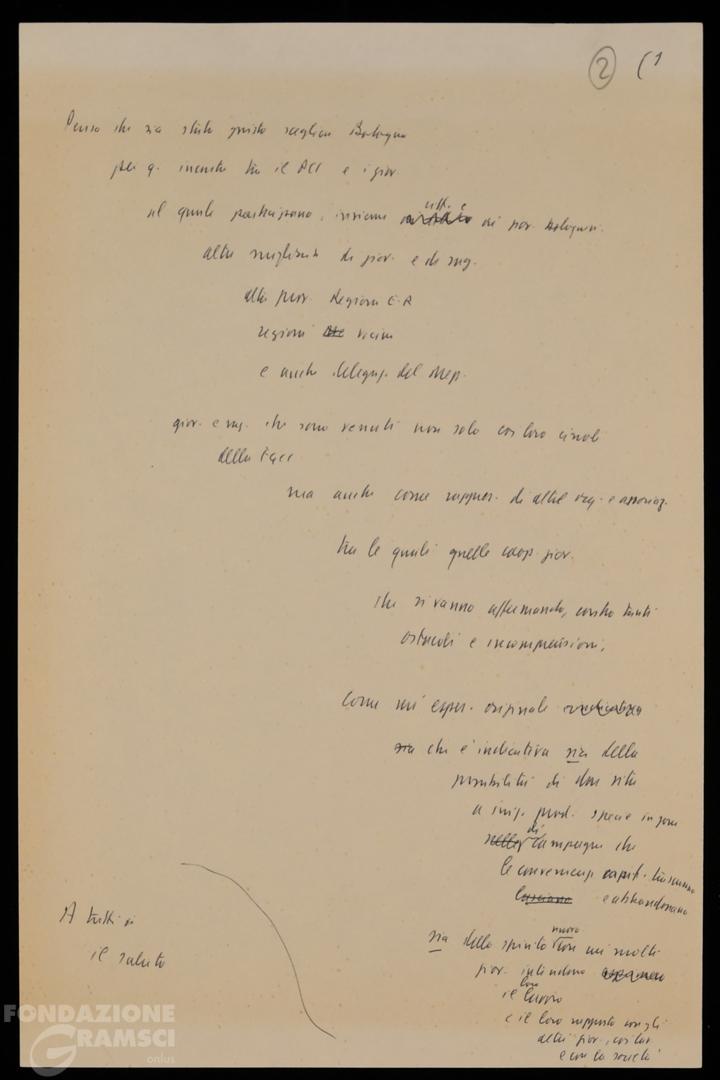 2 (1
Penso che sia stato giusto scegliere Bologna
per q. incontro tra il PCI e i giov.
al quale partecipano, insieme di giov. bolognesi.
altre migliaia di giov. e di rag.
altre prov. Regione E-R
regioni vicine
e anche delegaz. del Mezz.
giov. e rag. che sono venuti non solo coi loro circoli
della Fgci
ma anche come rappres. di altre org. e associaz.
tra le quali quelle coop. giov.
che si vanno affermando, contro tanti
ostacoli e incomprensioni,
come un' esper. originale
che è indicativa sia della
possibilità di dare vita
a iniz. prod. specie in zone
di campagna che
le convenienze capit. trascurano
e abbandonano
sia dello spirito nuovo con cui molti
giov. intendono
il loro lavoro
e il loro rapporto con gli
altri giov., coi lav.
e con la società
A tutti
il saluto
FONDAZIONE
GRAMSCI
onlus